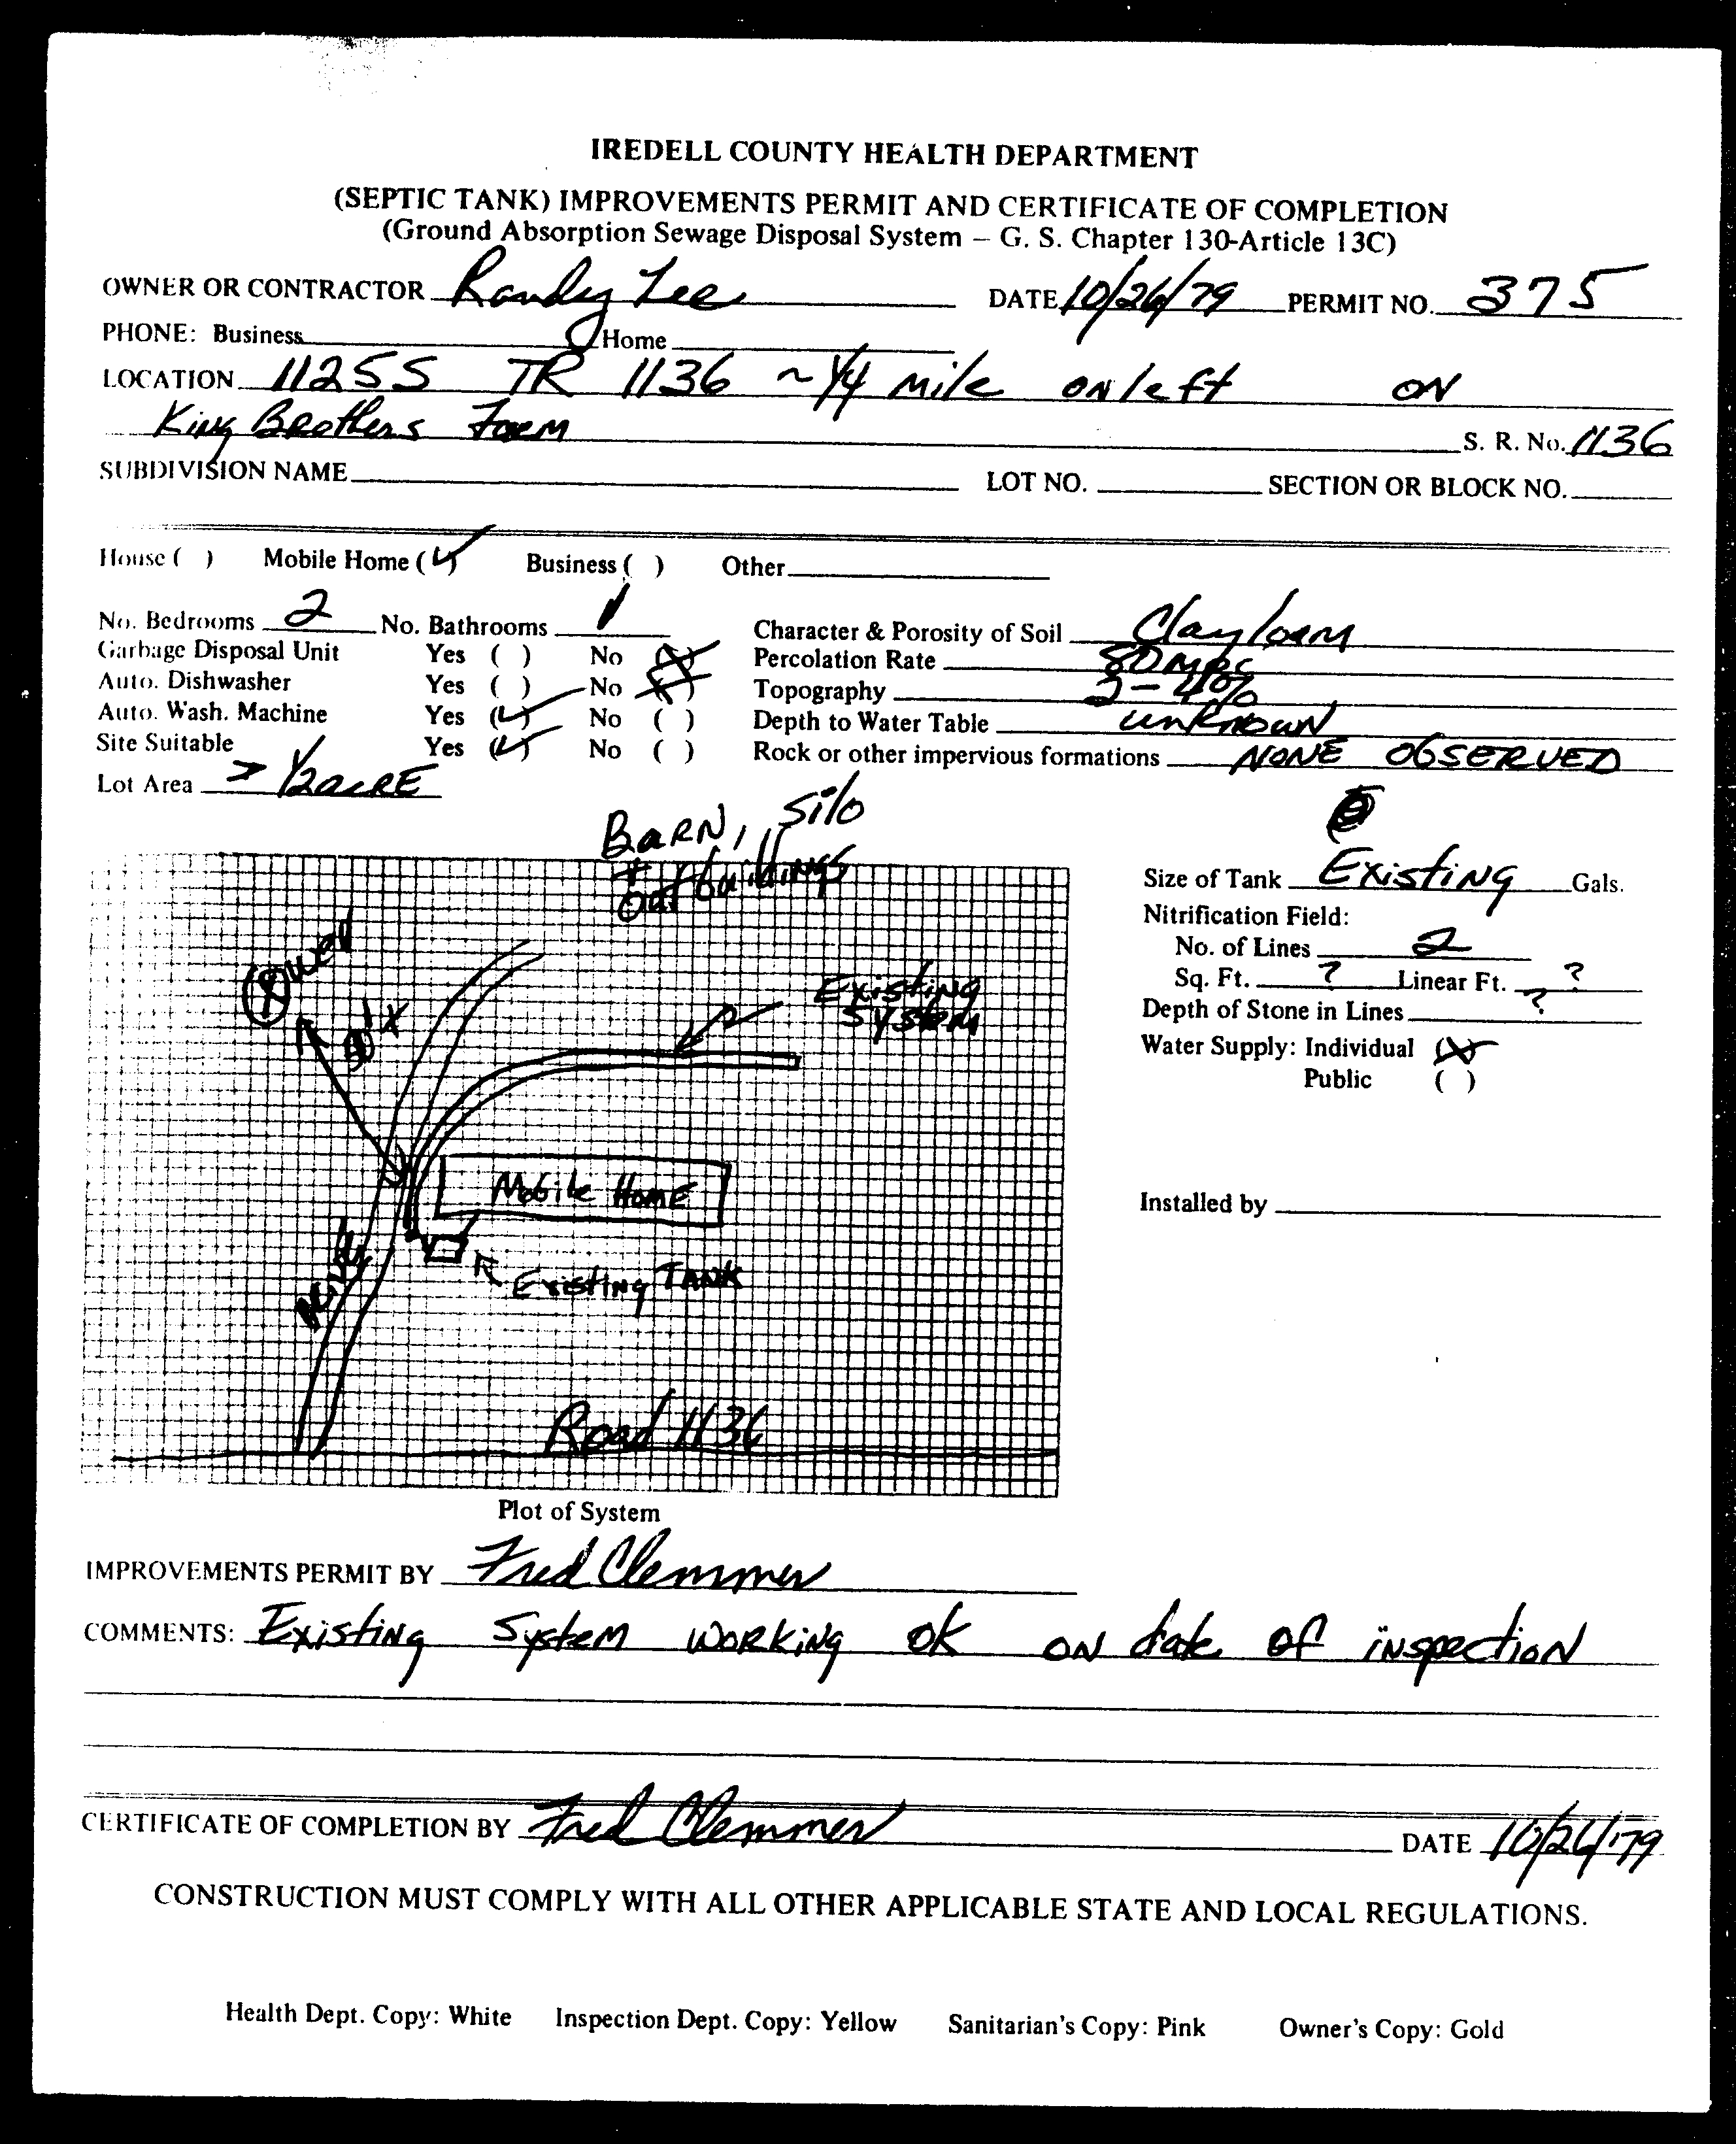 IREDELL COUNTY HEALTH DEPARTMENT
(SEPTIC TANK) IMPROVEMENTS PERMIT AND CERTIFICATE OF COMPLETION
(Ground Absorption Sewage Disposal System – G. S. Chapter 130-Article 13C)
OWNER OR CONTRACTOR Randy Lee DATE 10/26/79 PERMIT NO. 375
PHONE: Business Home
LOCATION 1125S TR 1136 ~ 1/4 mile on left ON
King Brothers Farm S. R. No. 1136
SUBDIVISION NAME LOT NO. SECTION OR BLOCK NO.
House ( ) Mobile Home (✓) Business ( ) Other
No. Bedrooms 2 No. Bathrooms 1 Character & Porosity of Soil Clay loam
Garbage Disposal Unit Yes ( ) No (X) Percolation Rate 80
Auto. Dishwasher Yes ( ) No (X) Topography 2-4%
Auto. Wash. Machine Yes (✓) No ( ) Depth to Water Table unknown
Site Suitable Yes (✓) No ( ) Rock or other impervious formations NONE OBSERVED
Lot Area > 1/2 acRE
BARN, Silo
+ outbuildings
Size of Tank Existing Gals.
Nitrification Field:
No. of Lines 2
Sq. Ft. ? Linear Ft. ?
Depth of Stone in Lines ?
Water Supply: Individual (X)
Public ( )
Installed by
well
Existing
System
Mobile Home
Existing TANK
Drive
Road 1136
Plot of System
IMPROVEMENTS PERMIT BY Fred Clemmer
COMMENTS: Existing System working ok on date of inspection
CERTIFICATE OF COMPLETION BY Fred Clemmer DATE 10/26/79
CONSTRUCTION MUST COMPLY WITH ALL OTHER APPLICABLE STATE AND LOCAL REGULATIONS.
Health Dept. Copy: White Inspection Dept. Copy: Yellow Sanitarian's Copy: Pink Owner's Copy: Gold